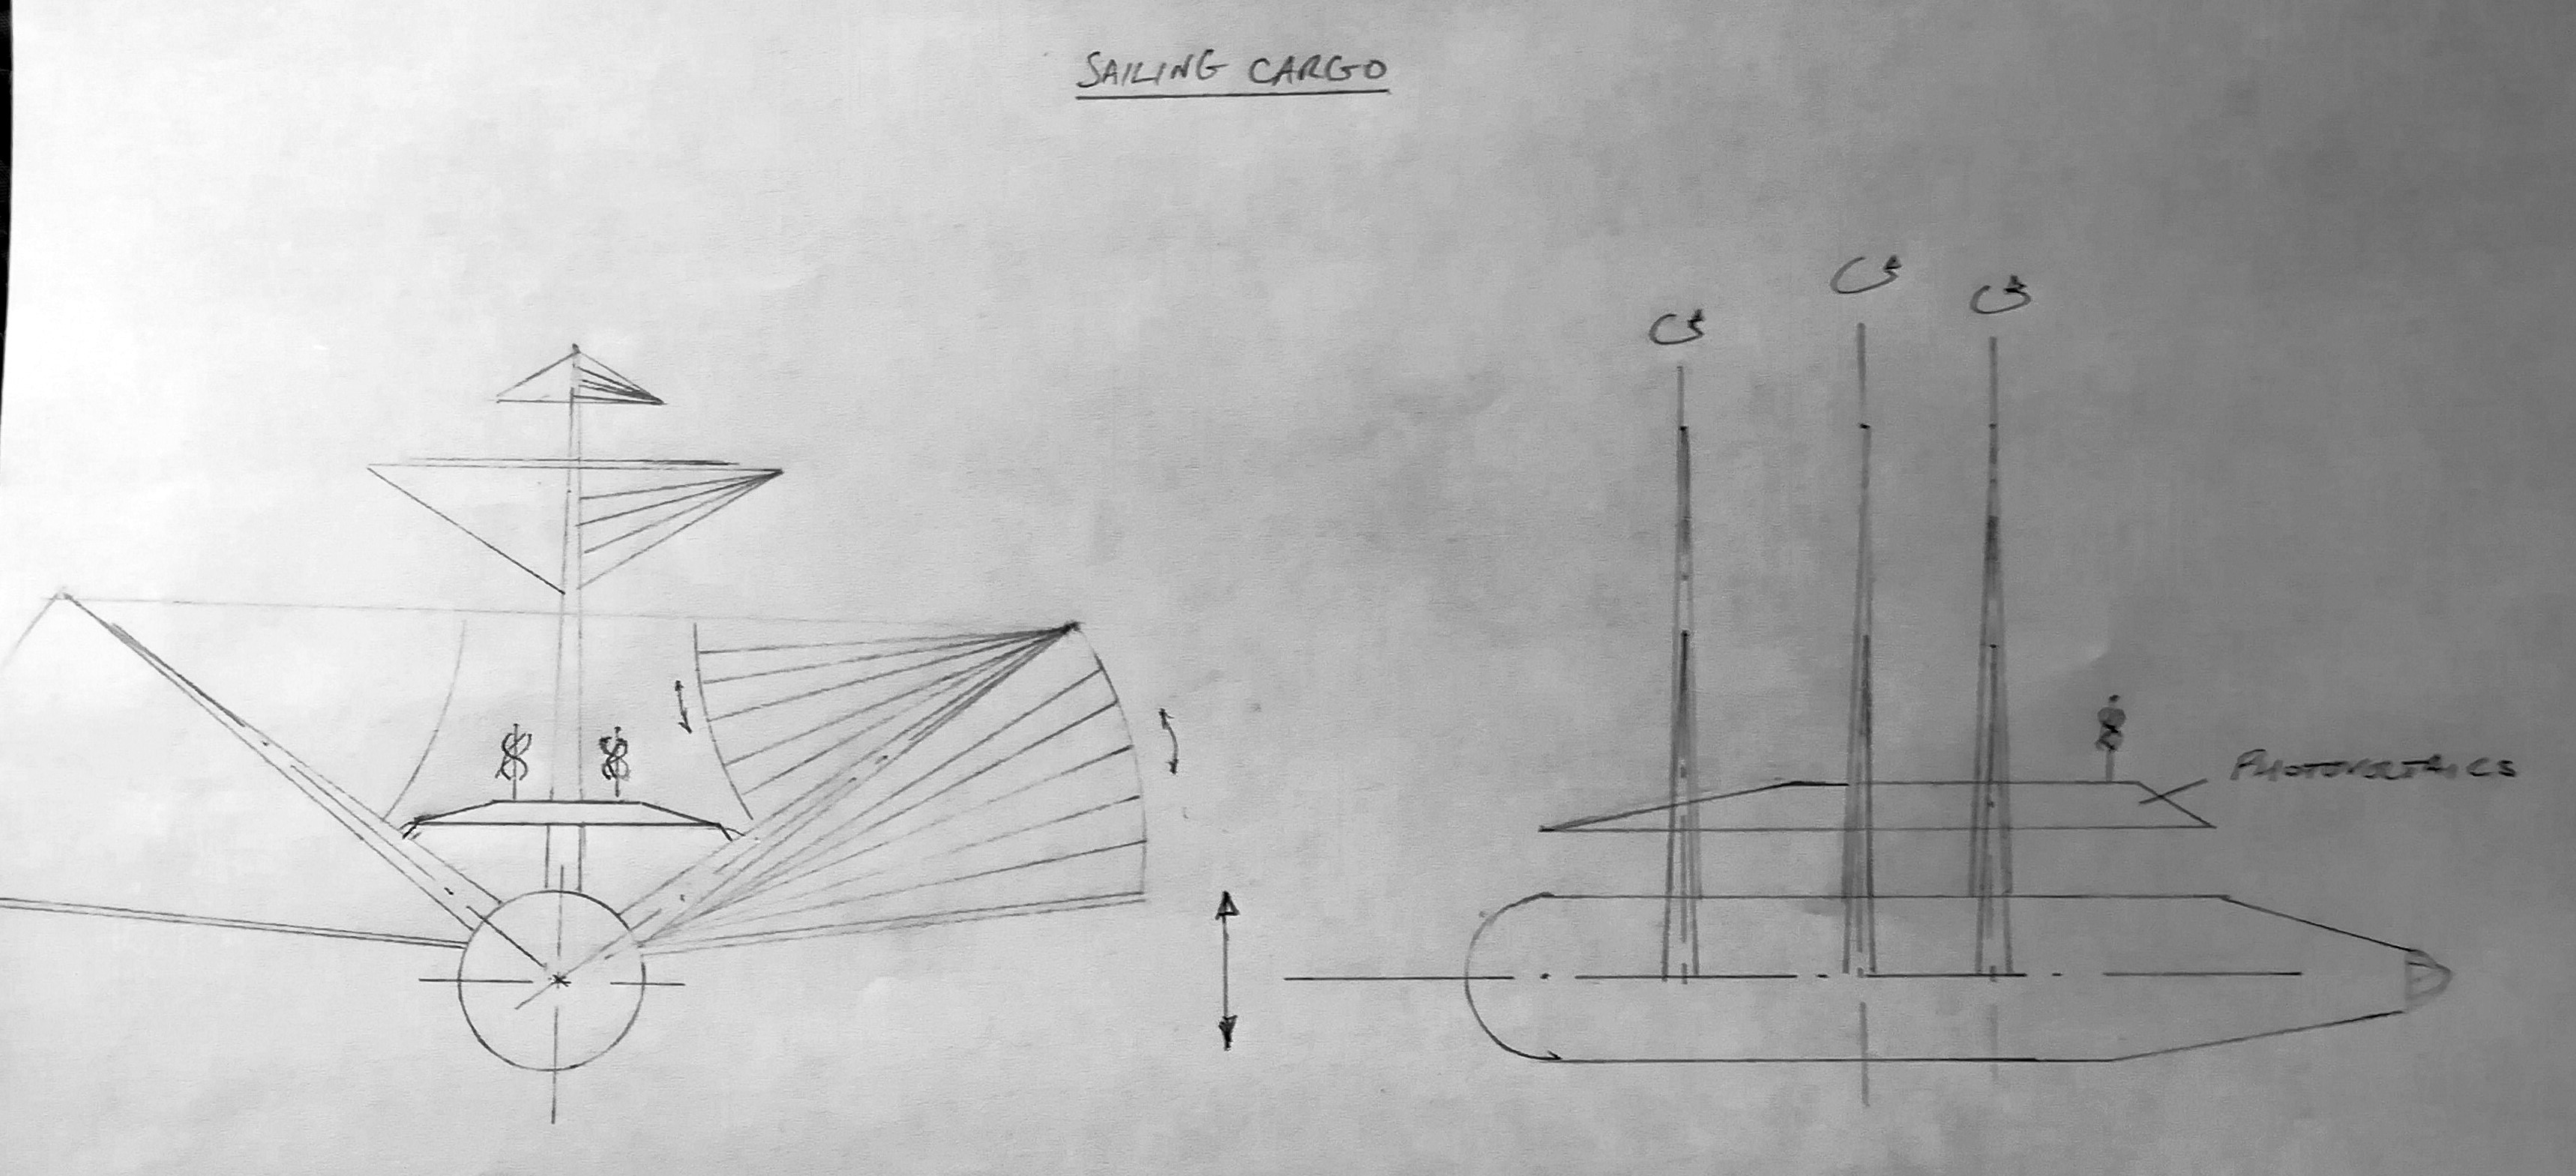 SAILING CARGO
PHOTOVOLTAICS